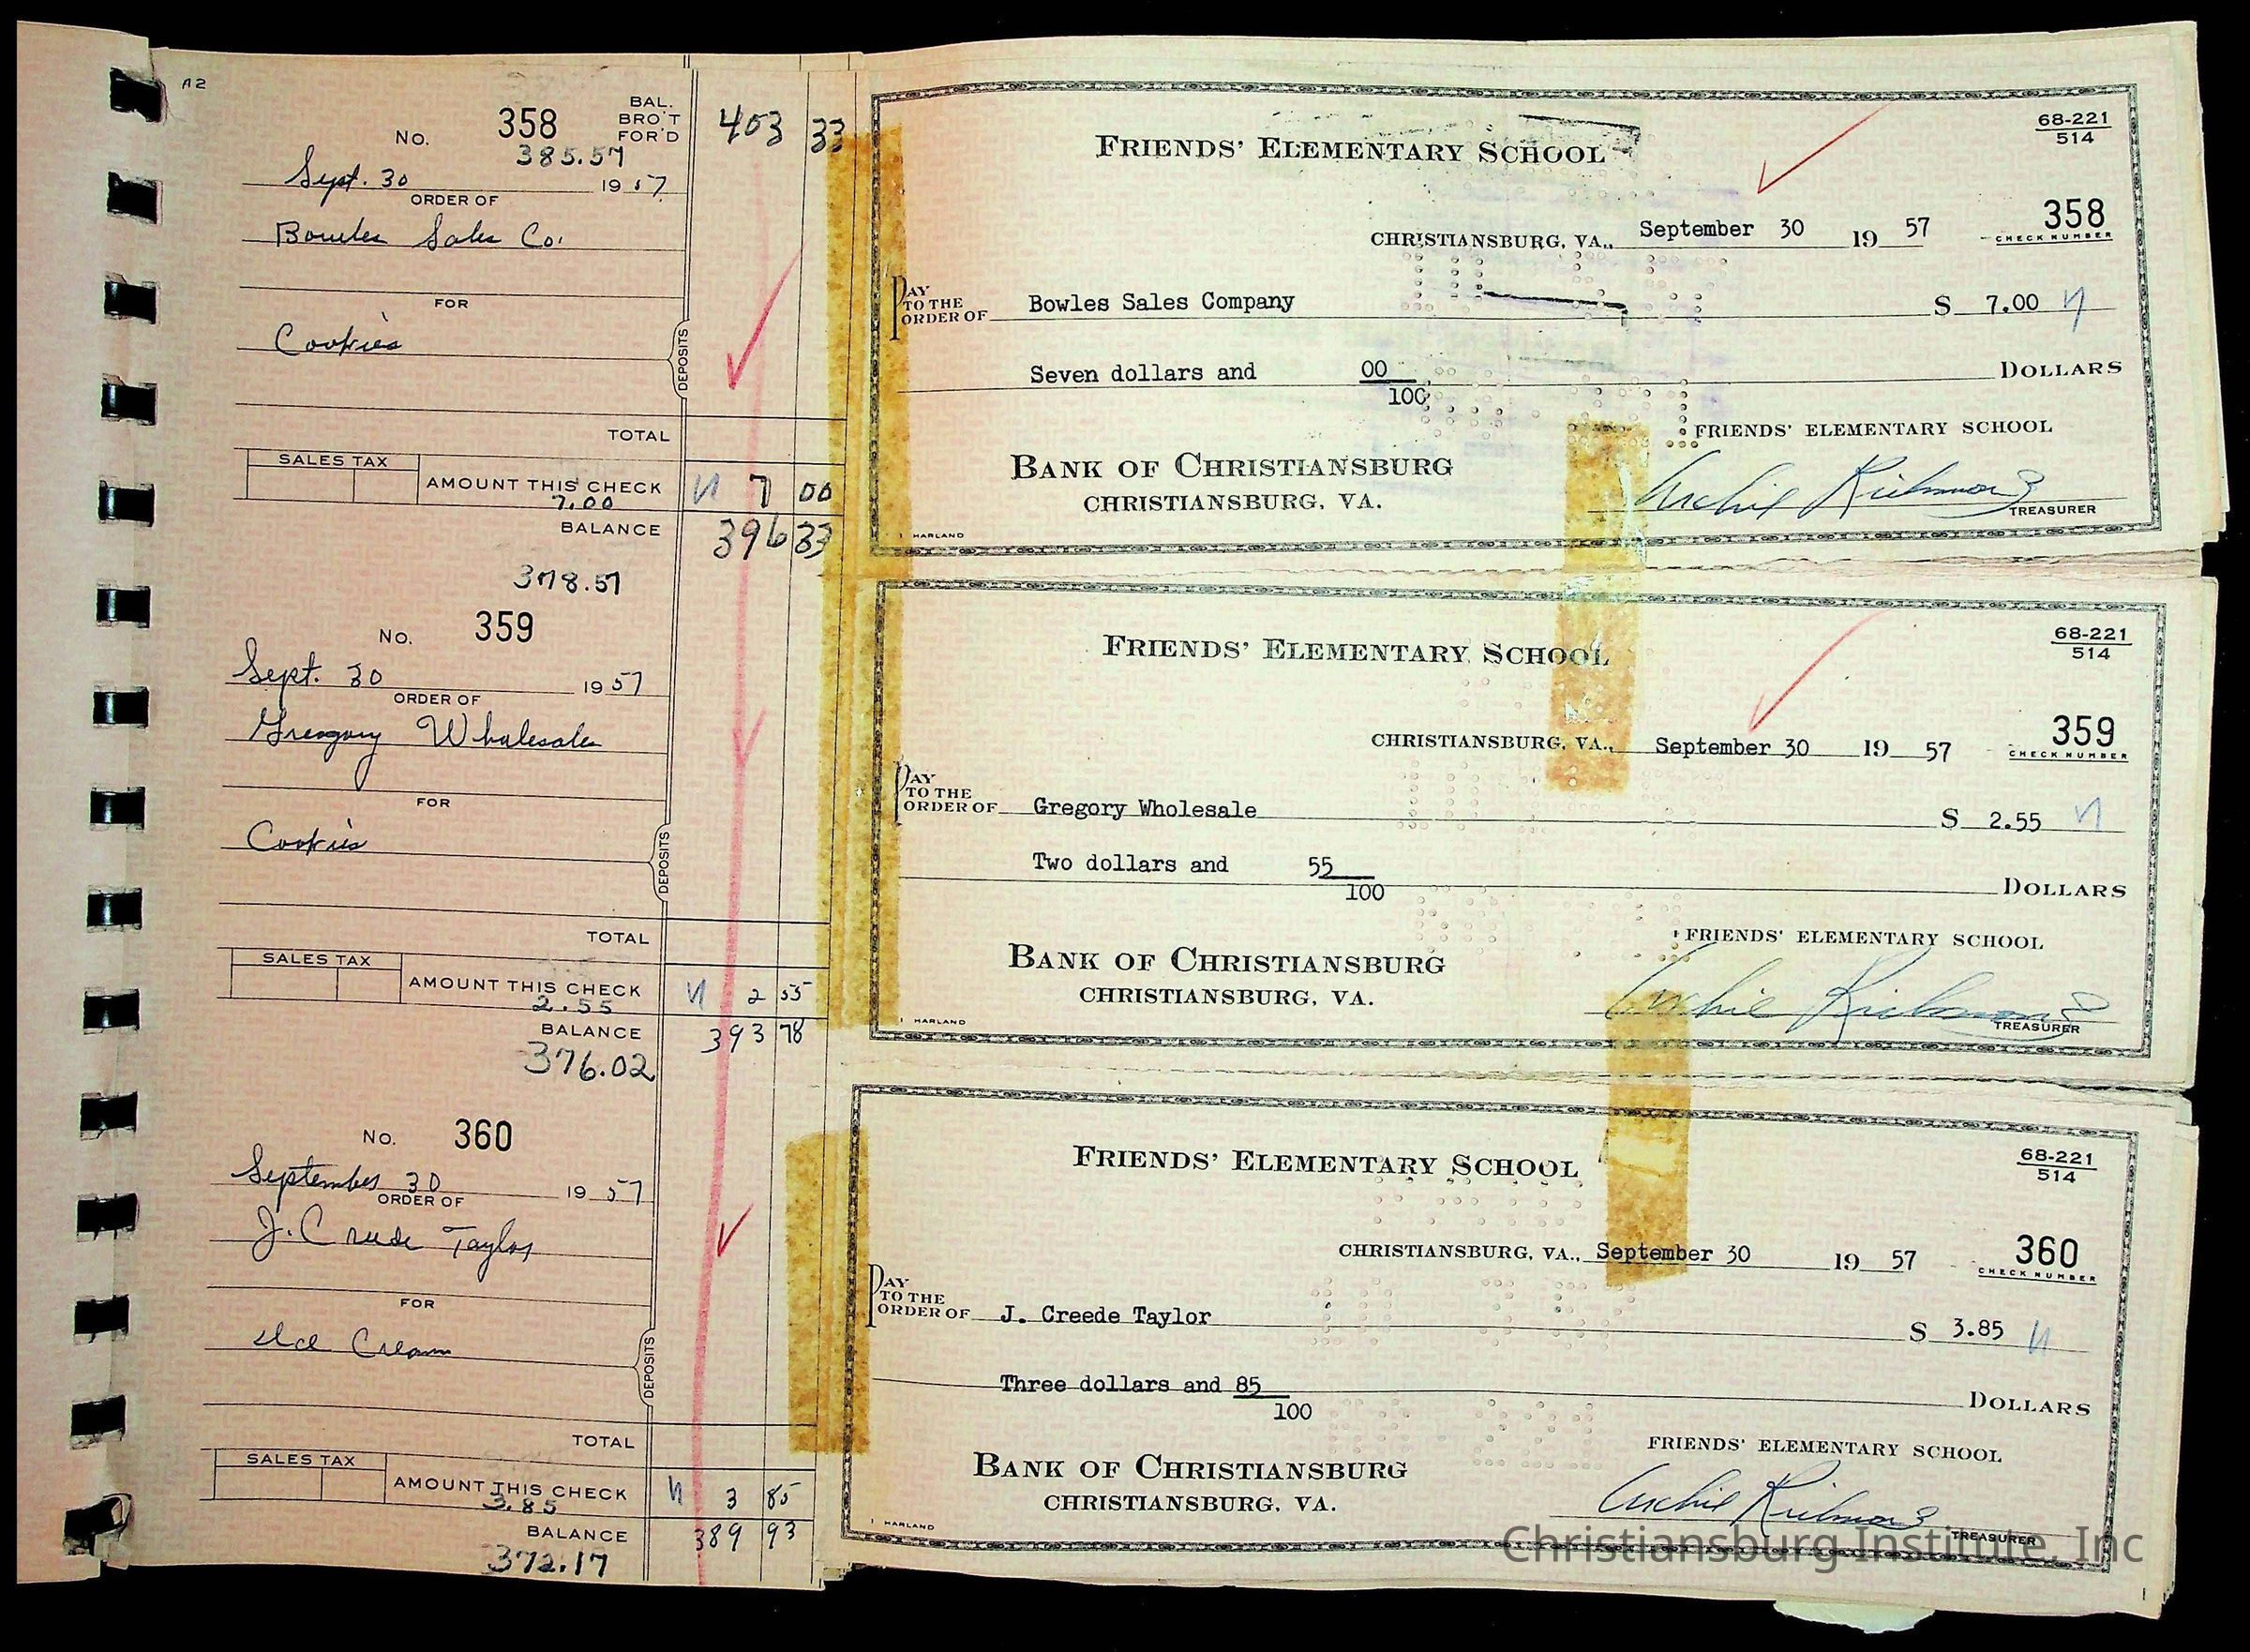 A2
No. 358 BAL. BRO'T FOR'D 403 33
385.57
Sept. 30 1957
ORDER OF
Bowles Sales Co.
FOR
Cookies
DEPOSITS
TOTAL
SALES TAX
AMOUNT THIS CHECK 7 00
7.00
BALANCE 396 33
378.57
No. 359
Sept. 30 1957
ORDER OF
Gregory Wholesale
FOR
Cookies
DEPOSITS
TOTAL
SALES TAX
AMOUNT THIS CHECK 2 55
2.55
BALANCE 393 78
376.02
No. 360
September 30 1957
ORDER OF
J. Creede Taylor
FOR
Ice Cream
DEPOSITS
TOTAL
SALES TAX
AMOUNT THIS CHECK 3 85
3.85
BALANCE 389 93
372.17
FRIENDS' ELEMENTARY SCHOOL
68-221
514
CHRISTIANSBURG, VA., September 30 19 57
358
CHECK NUMBER
PAY TO THE ORDER OF Bowles Sales Company $ 7.00
Seven dollars and 00/100 DOLLARS
FRIENDS' ELEMENTARY SCHOOL
BANK OF CHRISTIANSBURG
CHRISTIANSBURG, VA.
Archie Richmond
TREASURER
HARLAND
FRIENDS' ELEMENTARY SCHOOL
68-221
514
CHRISTIANSBURG, VA., September 30 19 57
359
CHECK NUMBER
PAY TO THE ORDER OF Gregory Wholesale $ 2.55
Two dollars and 55/100 DOLLARS
FRIENDS' ELEMENTARY SCHOOL
BANK OF CHRISTIANSBURG
CHRISTIANSBURG, VA.
Archie Richmond
TREASURER
HARLAND
FRIENDS' ELEMENTARY SCHOOL
68-221
514
CHRISTIANSBURG, VA., September 30 19 57
360
CHECK NUMBER
PAY TO THE ORDER OF J. Creede Taylor $ 3.85
Three dollars and 85/100 DOLLARS
FRIENDS' ELEMENTARY SCHOOL
BANK OF CHRISTIANSBURG
CHRISTIANSBURG, VA.
Archie Richmond
TREASURER
HARLAND
Christiansburg Institute, Inc